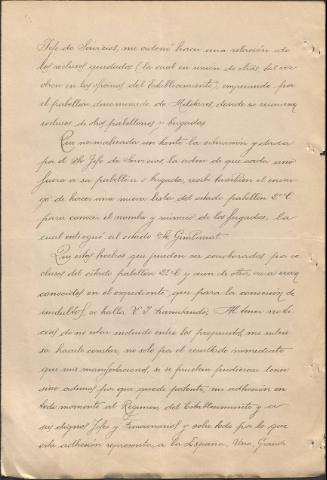 Jefe de Servicios, me ordenó hacer una relación de
los reclusos quedados (la cual en unión de otras, tal vez
obren en las oficinas del Establecimiento), empezando por
el pabellón denominado de Militares, donde se reunieron
reclusos de otros pabellones y brigadas
Que normalizada un tanto la situación y dada
por el Sr. Jefe de Servicios, la orden de que cada uno
fuera a su pabellón o brigada, recibí también el encar
go de hacer una nueva lista del citado pabellón 2º C.
para conocer el nombre y número de los fugados, la
cual entregué al citado Sr.
Que estos hechos que pueden ser corroborados por re
clusos del citado pabellón 2º C y aun de otros, son muy
conocidos en el expediente, que para la concesión de
indultos, se halla V. I. tramitando. Al tener noti
cias de no estar incluido entre los propuestos, me intere
sa hacerlo constar, no solo por el resultado inmediato
que mis manifestaciones, si se prueban pudieran tener
sino además por que quede patente, mi adhesión en
todo momento al Régimen del Establecimiento y a
sus dignos Jefes y Funcionarios y sobre todo por lo que
esta adhesión representa a la España, Una, Grande